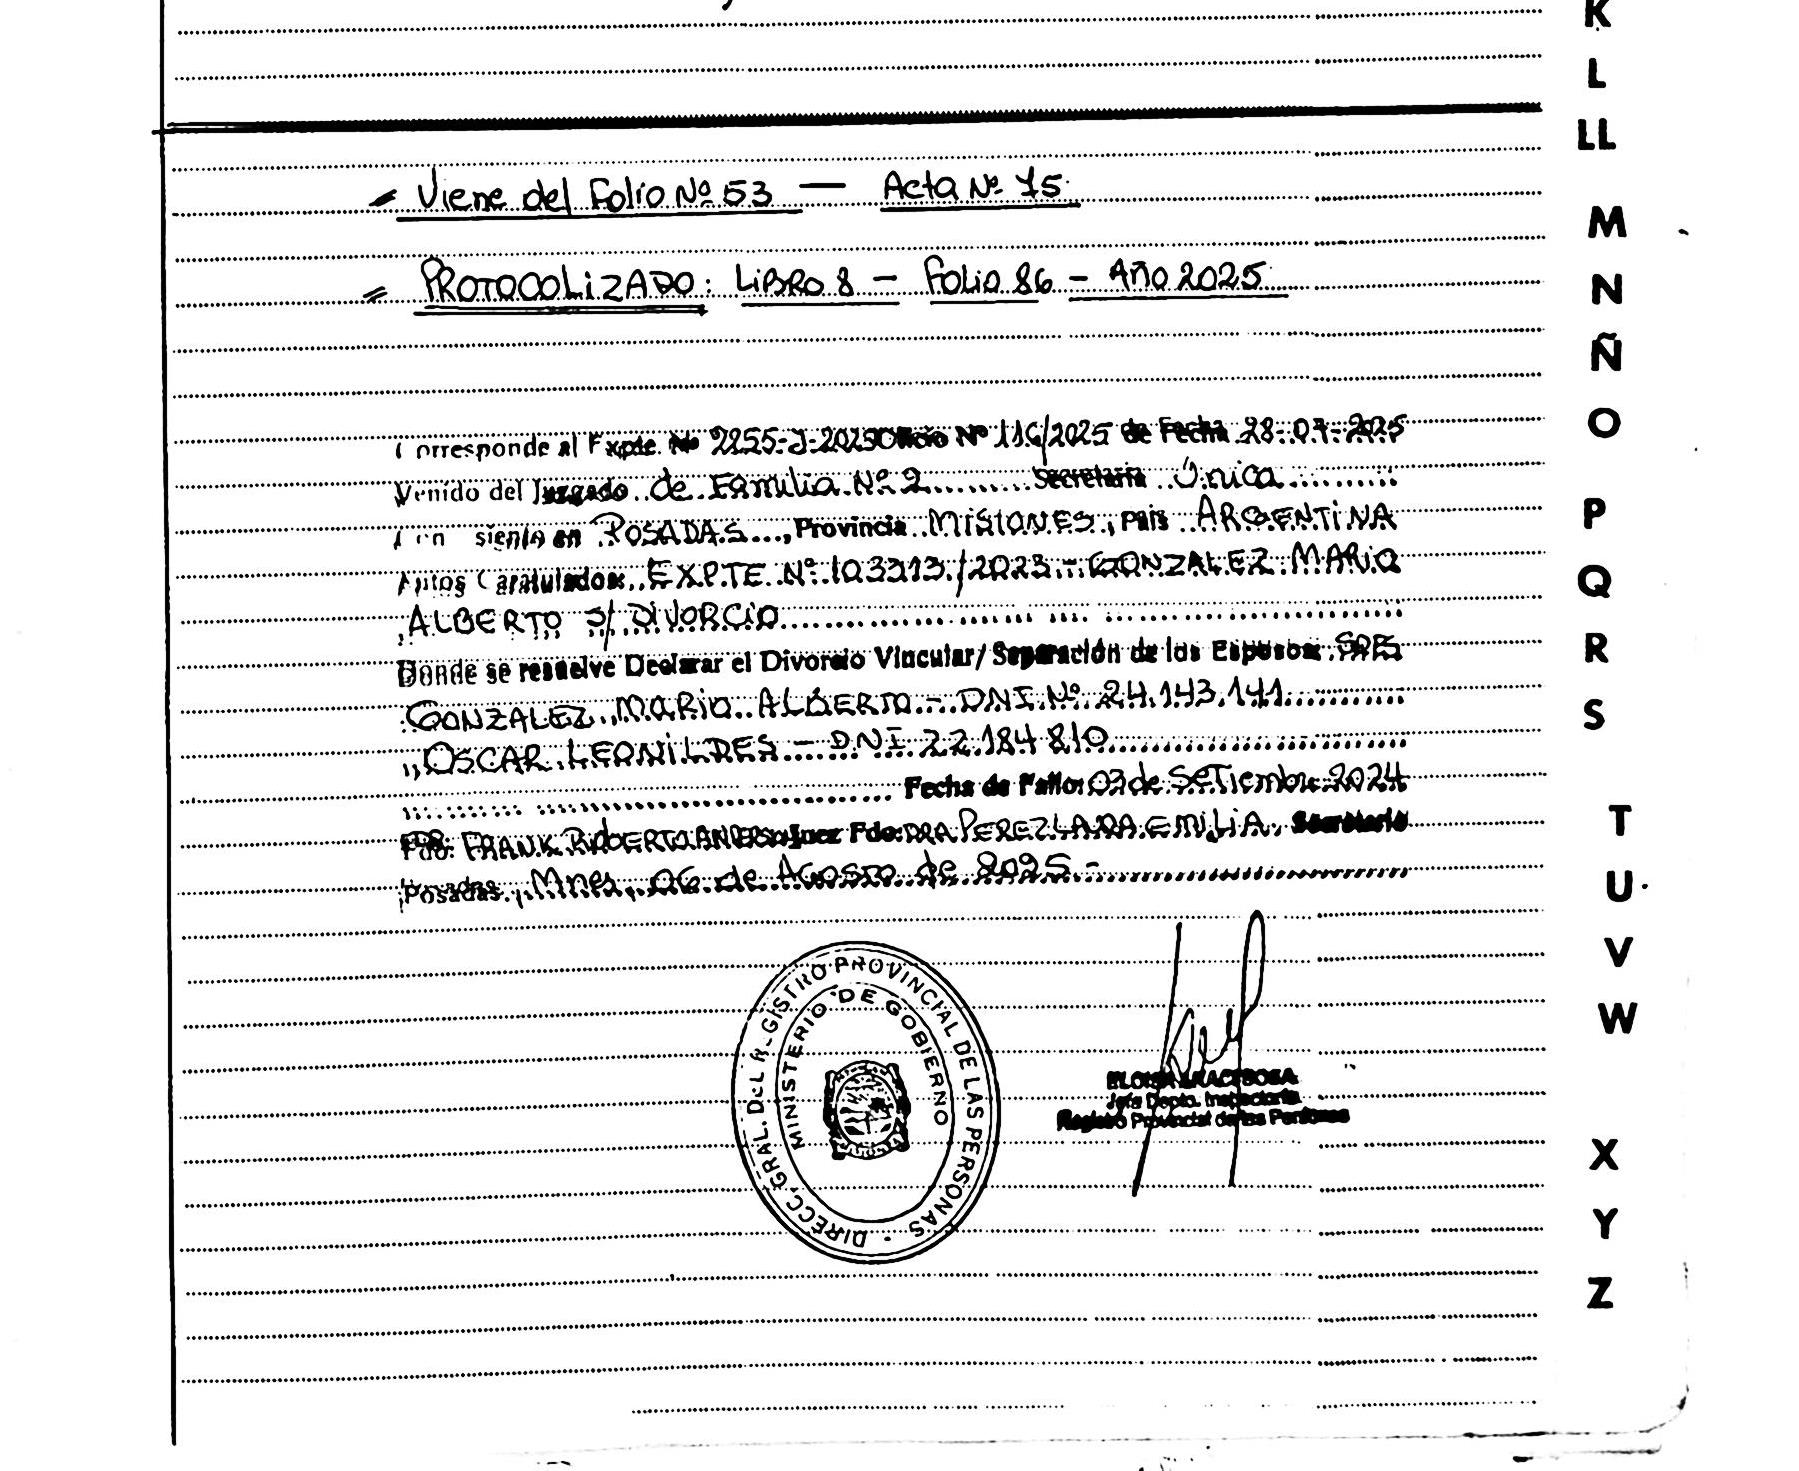 K
L
LL
M
N
Ñ
O
P
Q
R
S
T
U
V
W
X
Y
Z
Viene del Folio Nº 53 — Acta Nº 75
PROTOCOLIZADO: LIBRO 8 - Folio 86 - AÑO 2025
Corresponde al Expte. Nº 2255-J-2025 Oficio Nº 116/2025 de Fecha 28-07-2025
Venido del Juzgado de Familia Nº 2 Secretaria Única
Con siento en POSADAS, Provincia MISIONES, Pais ARGENTINA
Autos Caratulados: EXPTE Nº 103313/2023 - GONZALEZ MARIO
ALBERTO S/ DIVORCIO
Donde se resuelve Declarar el Divorcio Vincular/Separación de los Esposos: SRES
GONZALEZ MARIO ALBERTO - DNI Nº 24.143.141
OSCAR LEONILDES - DNI 22.184.810
Fecha de Fallo: 03 de SeTiembre 2024
Fdo: DR. FRANK ROBERTO ANDERSON Juez Fdo: DRA PEREZ LARA EMILIA Secretario
Posadas, Mnes, 06 de AGOSTO de 2025.-
DIRECC. GRAL. DEL REGISTRO PROVINCIAL DE LAS PERSONAS
MINISTERIO DE GOBIERNO
Jefa Depto. Inspectoria
Registro Provincial de las Personas